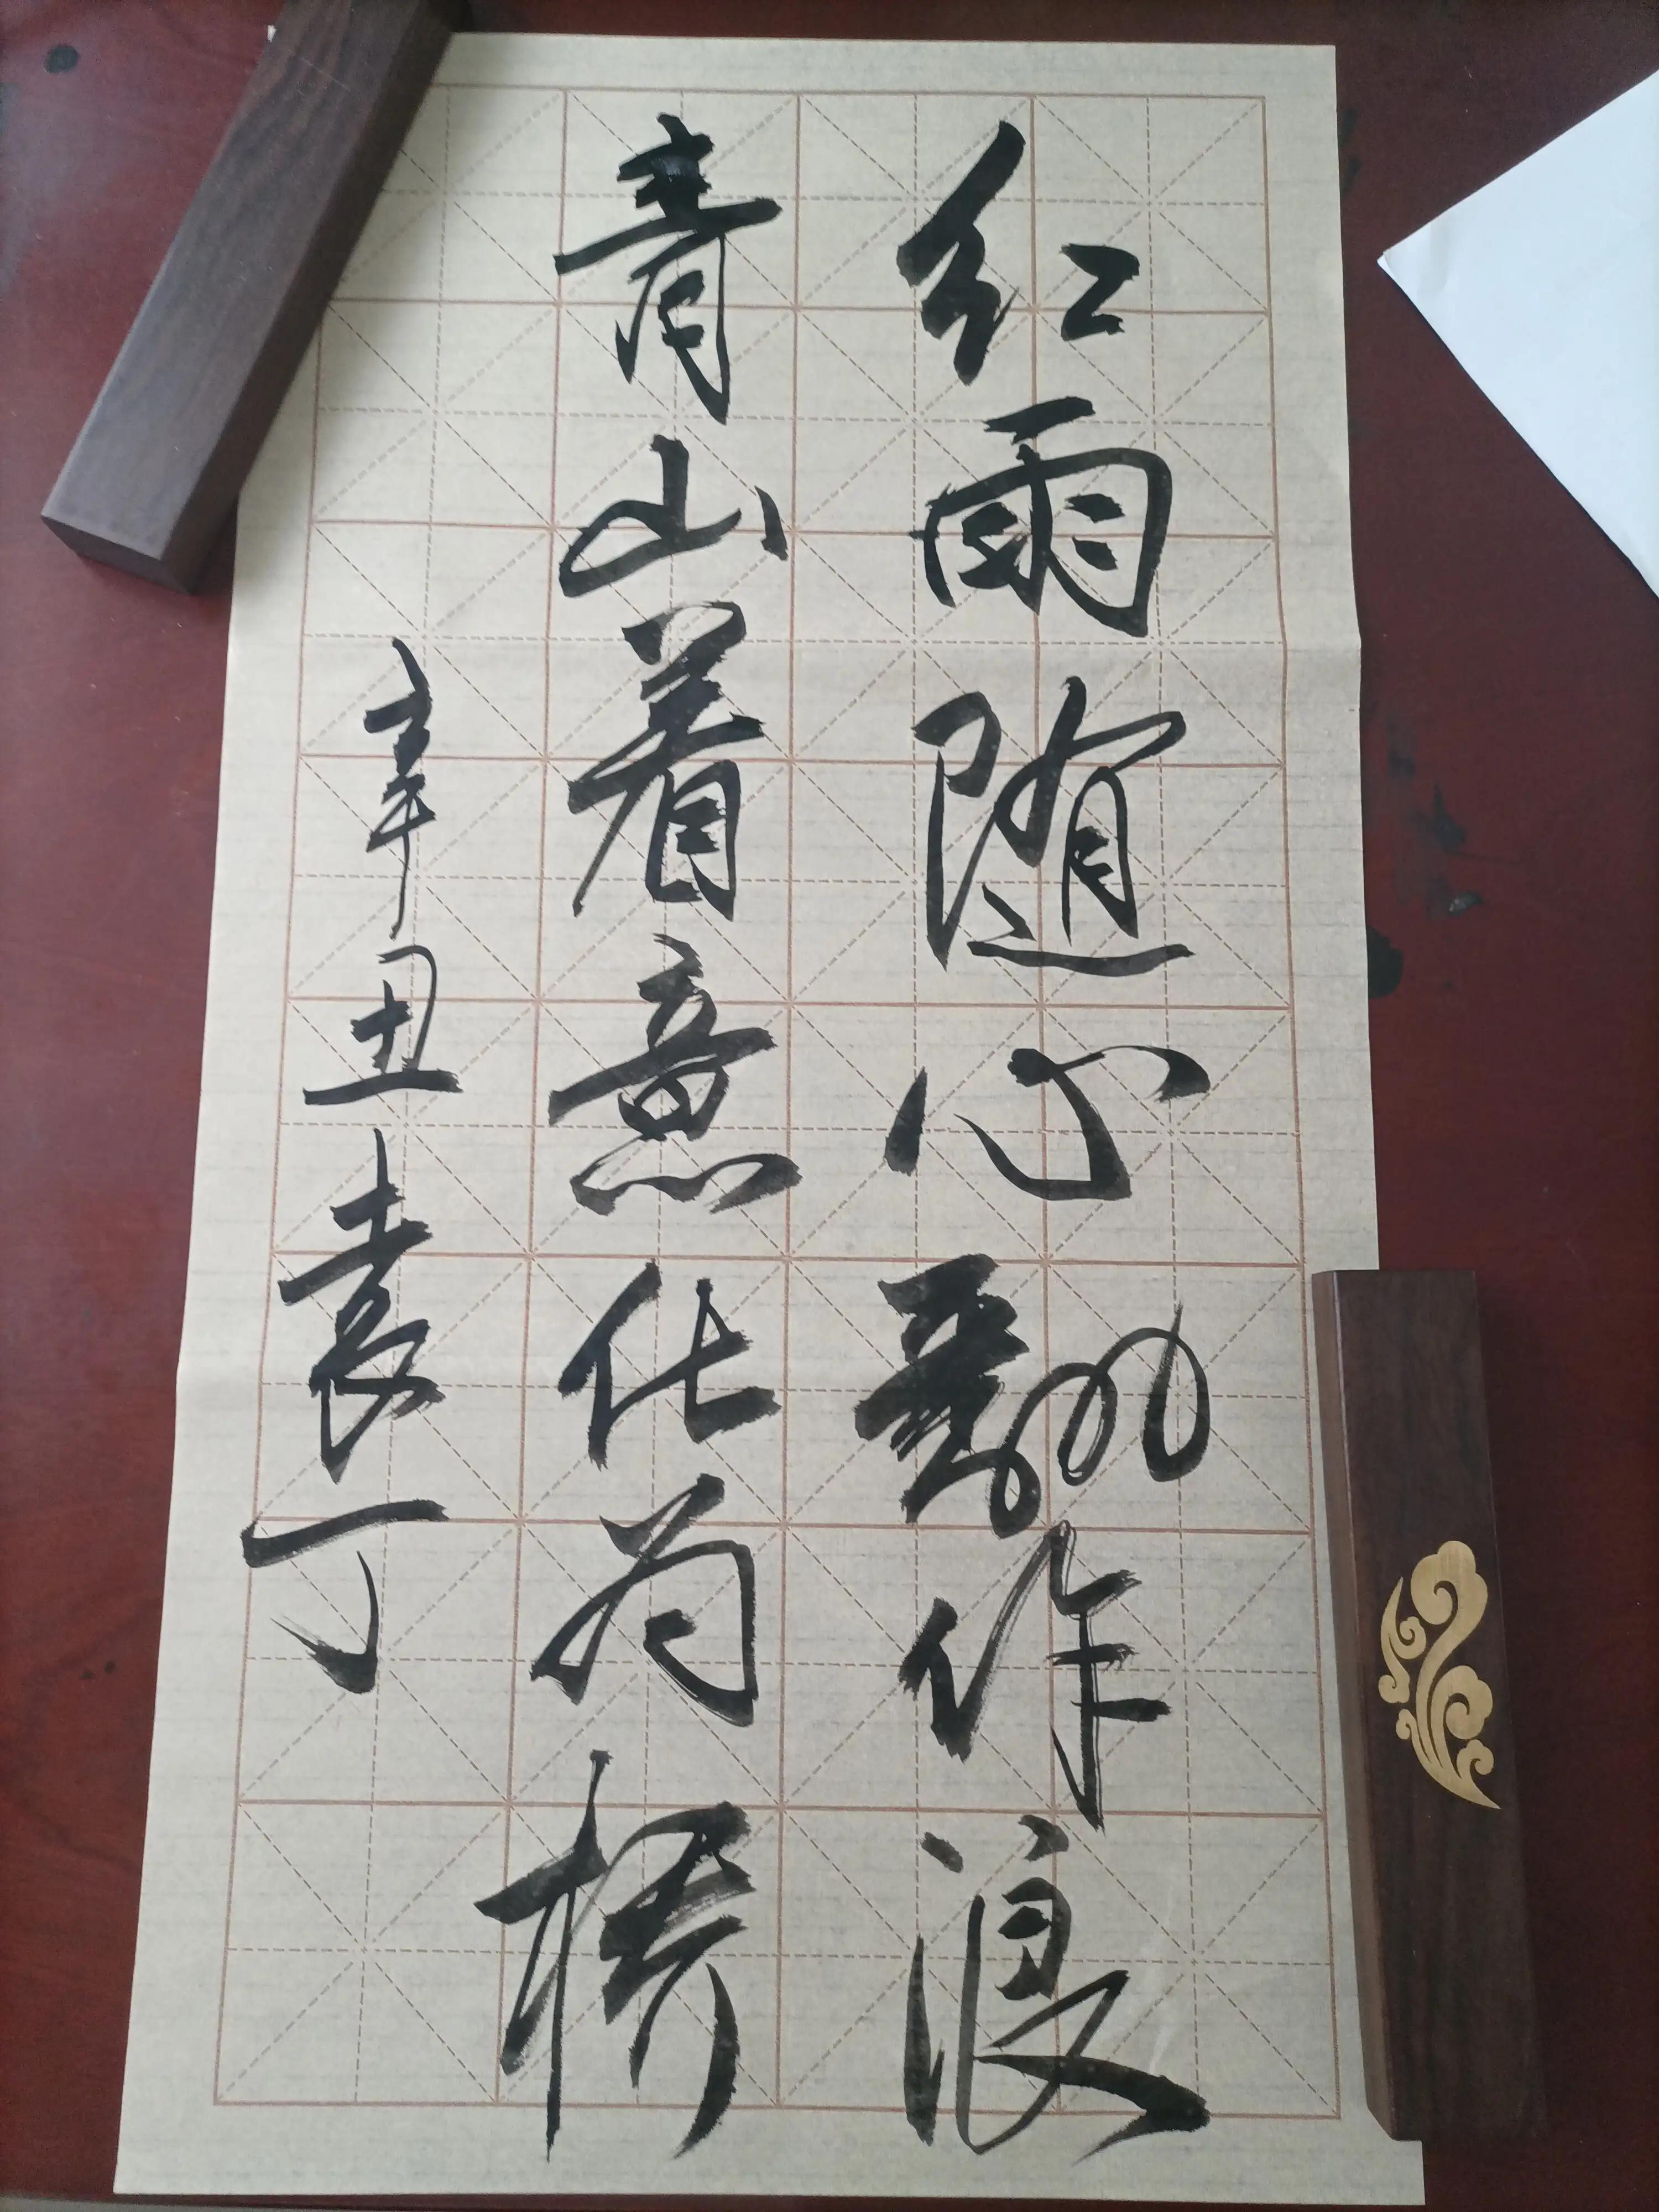 红雨随心翻作浪
青山着意化为桥
辛丑袁丁